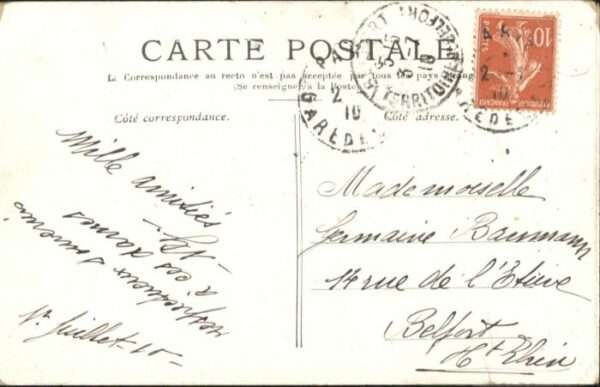 CARTE POSTALE
La Correspondance au recto n'est pas acceptée par tous les pays étrangers
(Se renseigner à la Poste)
Côté correspondance.
Côté adresse.
Mille amitiés
à ces dames
respectueux souvenir
1r Juillet-10-
Mademoiselle
Germaine Baumann
14 rue de l'Etuve
Belfort
Ht Rhin
10
POSTES
GARE DE
2
10
TERRITOIRE